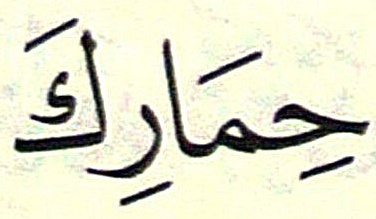 حِمَارِكَ